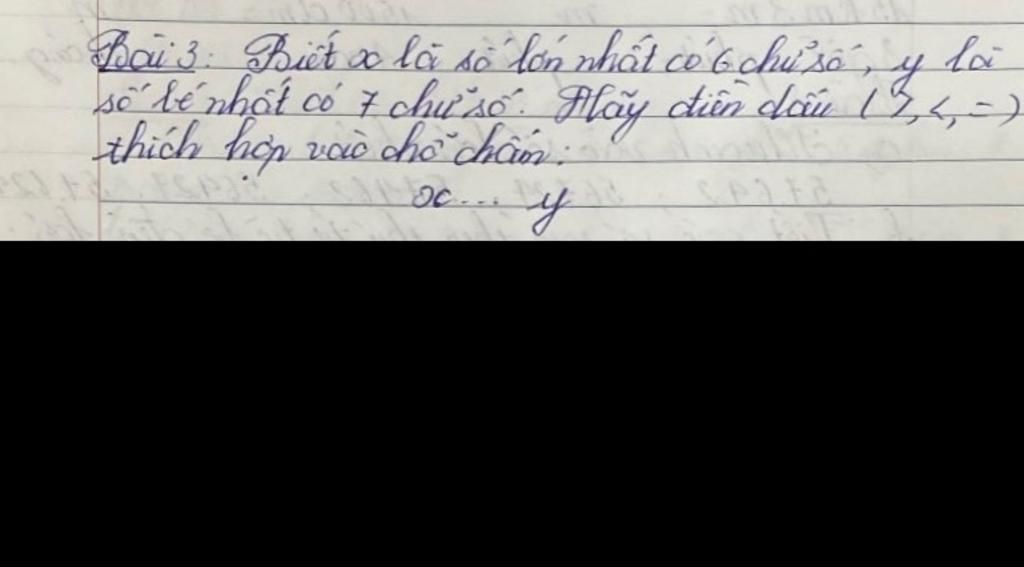 Bài 3: Biết x là số lớn nhất có 6 chữ số, y là
số bé nhất có 7 chữ số. Hãy điền dấu (>, <, =)
thích hợp vào chỗ chấm:
x... y